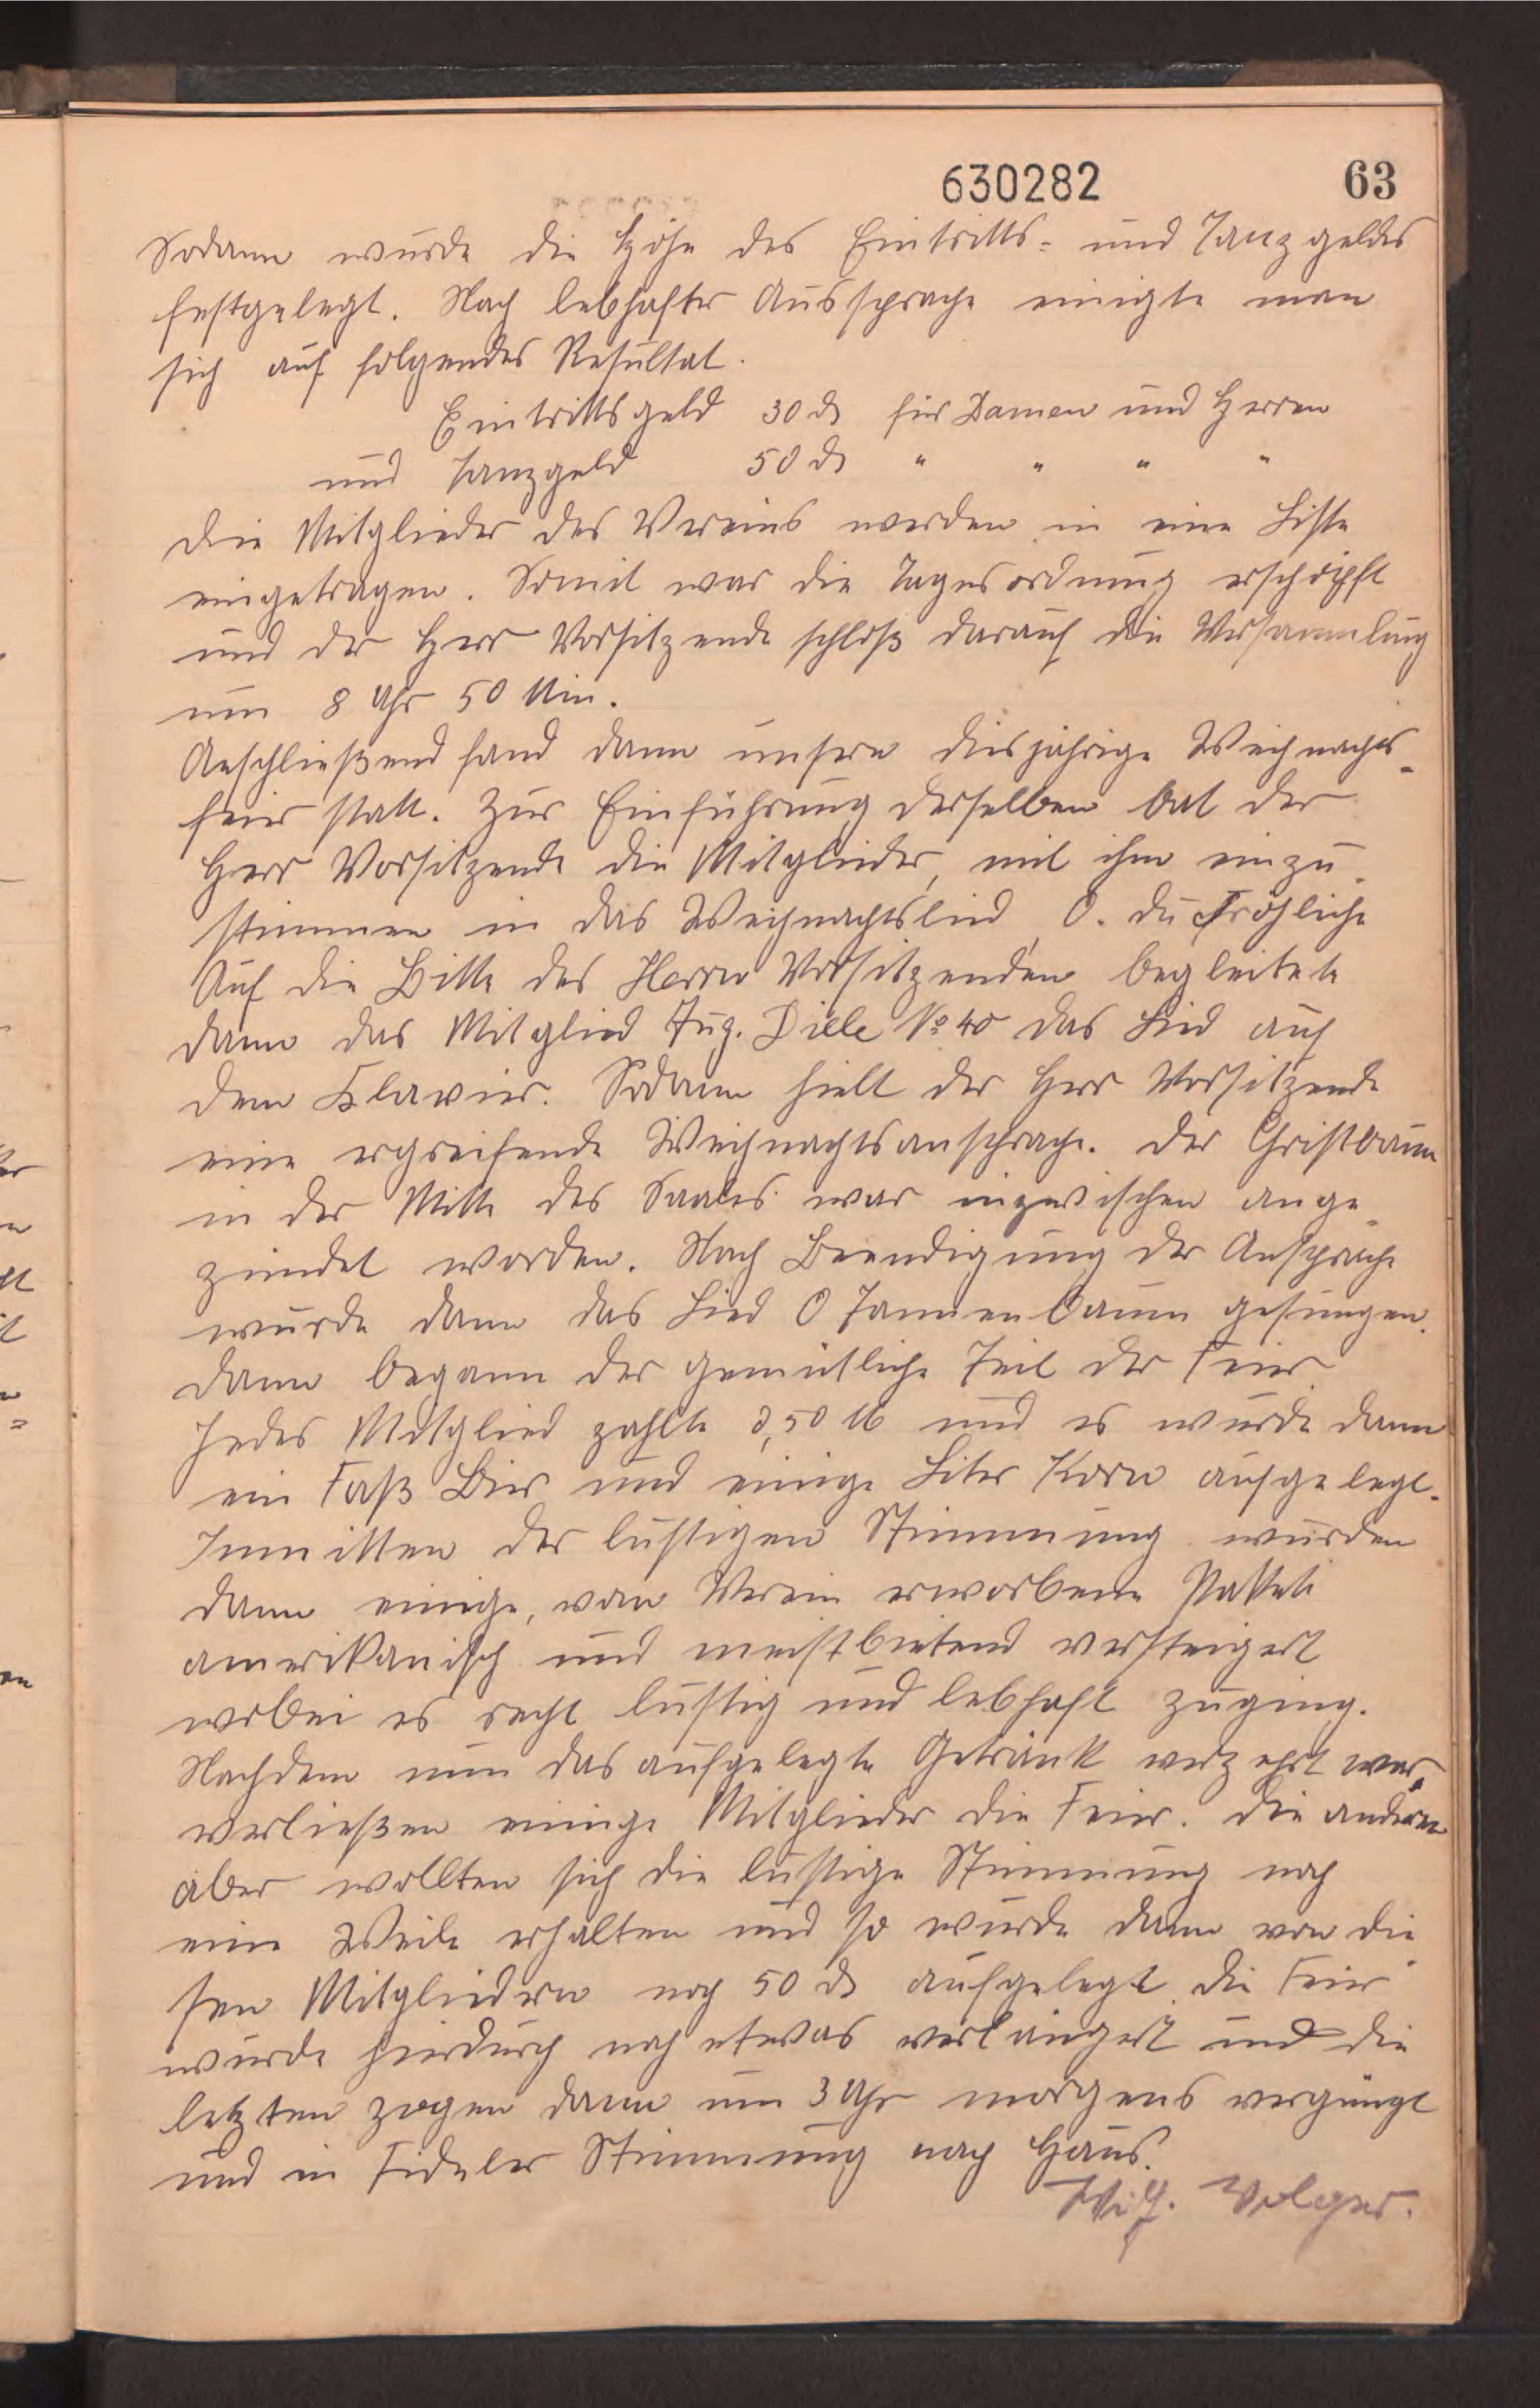 630282 63
Sodann wurde die Höhe des Eintritts- und Tanzgeldes
festgelegt. Nach lebhafter Aussprache einigte man
sich auf folgendes Resultat.
Eintrittsgeld 30 ₰ für Damen und Herren
und Tanzgeld 50 ₰ " " " "
Die Mitglieder des Vereins werden in eine Liste
eingetragen. Somit war die Tagesordnung erschöpft
und der Herr Vorsitzende schloß darauf die Versammlung
um 8 Uhr 50 Min.
Anschließend fand dann unsere diesjährige Weihnachts-
feier statt. Zur Einführung derselben bat der
Herr Vorsitzende die Mitglieder, mit ihm einzu-
stimmen in das Weihnachtslied O. du fröhliche
Auf die Bitte des Herrn Vorsitzenden begleitete
dann das Mitglied Aug. Dille No 40 das Lied auf
dem Klavier. Sodann hielt der Herr Vorsitzende
eine ergreifende Weihnachtsansprache. Der Christbaum
in der Mitte des Saales war inzwischen ange-
zündet worden. Nach Beendigung der Ansprache
wurde dann das Lied O Tannenbaum gesungen.
Dann begann der gemütliche Teil der Feier
Jedes Mitglied zahlte 0,50 M und es wurde dann
ein Faß Bier und einige Liter Korn aufgelegt.
Inmitten der lustigen Stimmung wurden
dann einige, vom Verein erworbene Pakete
amerikanisch und meistbietend versteigert
wobei es recht lustig und lebhaft zuging.
Nachdem nun das aufgelegte Getränk verzehrt war,
verließen einige Mitglieder die Feier. Die anderen
aber wollten sich die lustige Stimmung noch
eine Weile erhalten und so wurde dann von die-
sen Mitgliedern noch 50 ₰ aufgelegt. Die Feier
wurde hierdurch noch etwas verlängert und die
letzten zogen dann um 3 Uhr morgens vergüngt
und in fideler Stimmung nach Haus.
Volger.